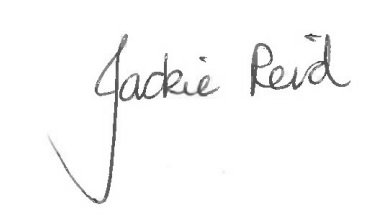 Jackie Reid